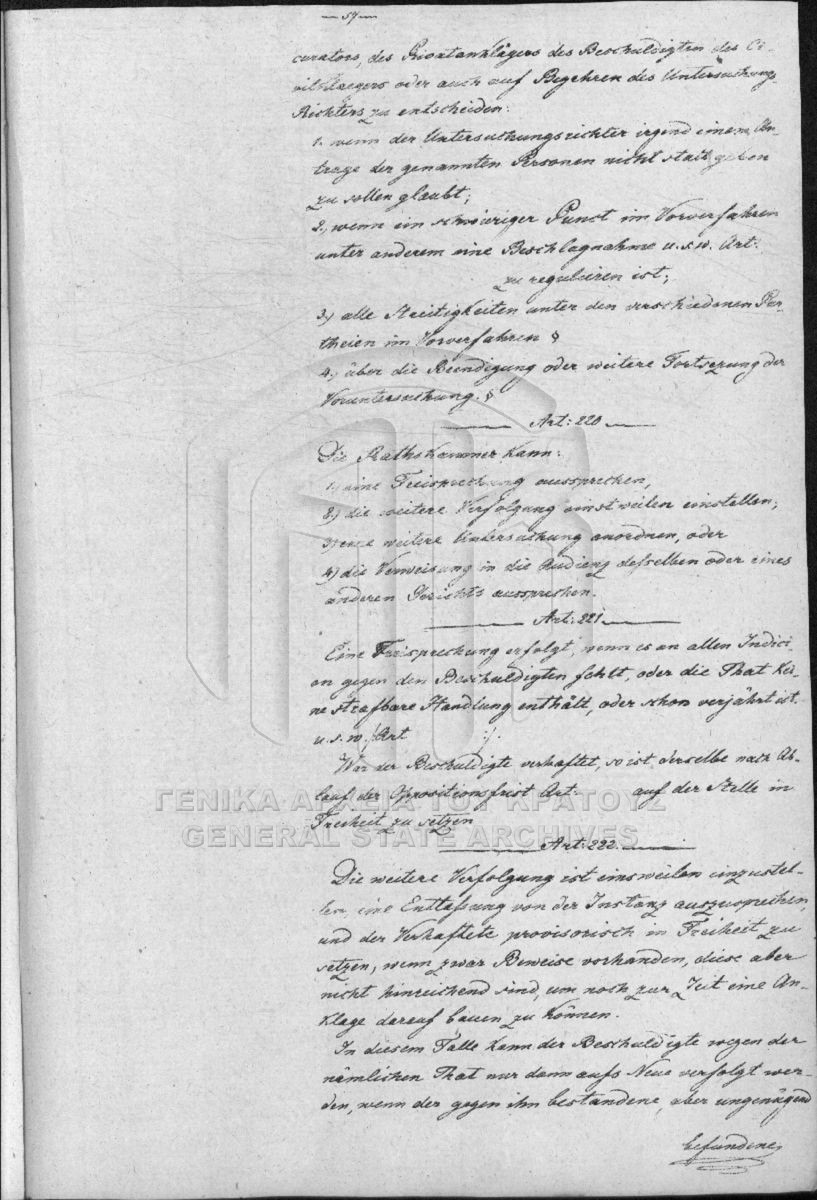 — 57 —
curators, des Privatanklägers des Beschuldigten des Ci-
vilklaegers oder auch auf Begehren des Untersuchungs
Richters zu entscheiden:
1. wenn der Untersuchungsrichter irgend einem An-
trage der genannten Personen nicht statt geben
zu sollen glaubt;
2.) wenn ein schwieriger Punct im Vorverfahren
unter anderem eine Beschlagnahme u.s.w. Art:
zu reguliren ist;
3.) alle Streitigkeiten unter den verschiedenen Par-
theien im Vorverfahren §
4.) über die Beendigung oder weitere Fortsezung der
Voruntersuchung. §
Art: 220
Die Rathskammer kann:
1.) eine Freisprechung aussprechen,
2.) die weitere Verfolgung einstweilen einstellen;
3.) eine weitere Untersuchung anordnen, oder
4.) die Verweisung in die Audienz desselben oder eines
anderen Gerichts aussprechen.
Art: 221
Eine Freisprechung erfolgt, wenn es an allen Indici-
en gegen den Beschuldigten fehlt, oder die That kei-
ne strafbare Handlung enthält, oder schon verjährt ist.
u. s. w. /: Art :/.
War der Beschuldigte verhaftet, so ist derselbe nach Ab-
lauf der Oppositionsfrist Art: auf der Stelle in
Freiheit zu setzen
ΓΕΝΙΚΑ ΑΡΧΕΙΑ ΤΟΥ ΚΡΑΤΟΥΣ
GENERAL STATE ARCHIVES
Art: 222.
Die weitere Verfolgung ist einsweilen einzustel-
len, eine Entlaßung von der Instanz auszusprechen,
und der Verhaftete provisorisch in Freiheit zu
setzen, wenn zwar Beweise vorhanden, diese aber
nicht hinreichend sind, um noch zur Zeit eine An-
klage darauf bauen zu können.
In diesem Falle kann der Beschuldigte wegen der
nämlichen That nur dann aufs Neue verfolgt wer-
den, wenn der gegen ihn bestandene, aber ungenügend
befundene